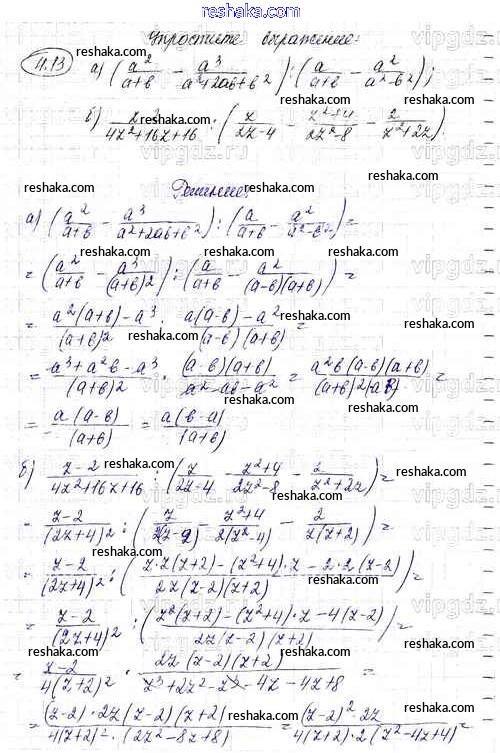 Упростите выражение:
11.13
а) (a²/(a+b) − a³/(a²+2ab+b²)) : (a/(a+b) − a²/(a²−b²));
б) (z−2)/(4z²+16z+16) : (z/(2z−4) − (z²+4)/(2z²−8) − 2/(z²+2z)).
Решение:
а) (a²/(a+b) − a³/(a²+2ab+b²)) : (a/(a+b) − a²/(a²−b²)) =
= (a²/(a+b) − a³/(a+b)²) : (a/(a+b) − a²/((a−b)(a+b))) =
= (a²(a+b) − a³)/(a+b)² : (a(a−b) − a²)/((a−b)(a+b)) =
= (a³+a²b−a³)/(a+b)² · ((a−b)(a+b))/(a²−ab−a²) = (a²b(a−b)(a+b))/((a+b)²(ab)) =
= − a(a−b)/(a+b) = a(b−a)/(a+b)
б) (z−2)/(4z²+16z+16) : (z/(2z−4) − (z²+4)/(2z²−8) − 2/(z²+2z)) =
= (z−2)/(2z+4)² : (z/(2(z−2)) − (z²+4)/(2(z²−4)) − 2/(z(z+2))) =
= (z−2)/(2z+4)² : ((z·z(z+2) − (z²+4)·z − 2·2(z−2))/(2z(z−2)(z+2))) =
= (z−2)/(2z+4)² : ((z²(z+2) − (z²+4)·z − 4(z−2))/(2z(z−2)(z+2))) =
= (z−2)/(4(z+2)²) · (2z(z−2)(z+2))/(z³+2z²−z³−4z−4z+8) =
= ((z−2)·2z(z−2)(z+2))/(4(z+2)²·(2z²−8z+8)) = ((z−2)²·2z)/(4(z+2)·2(z²−4z+4)) =